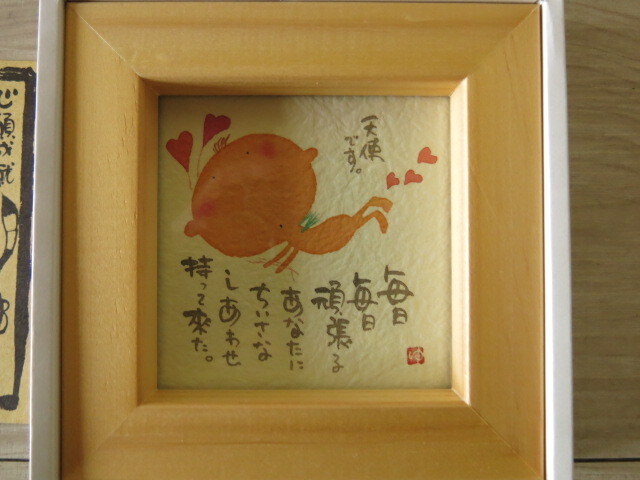 天使
です。
毎日
毎日
頑張る
あなたに
ちいさな
しあわせ
持って來た。
心願成就